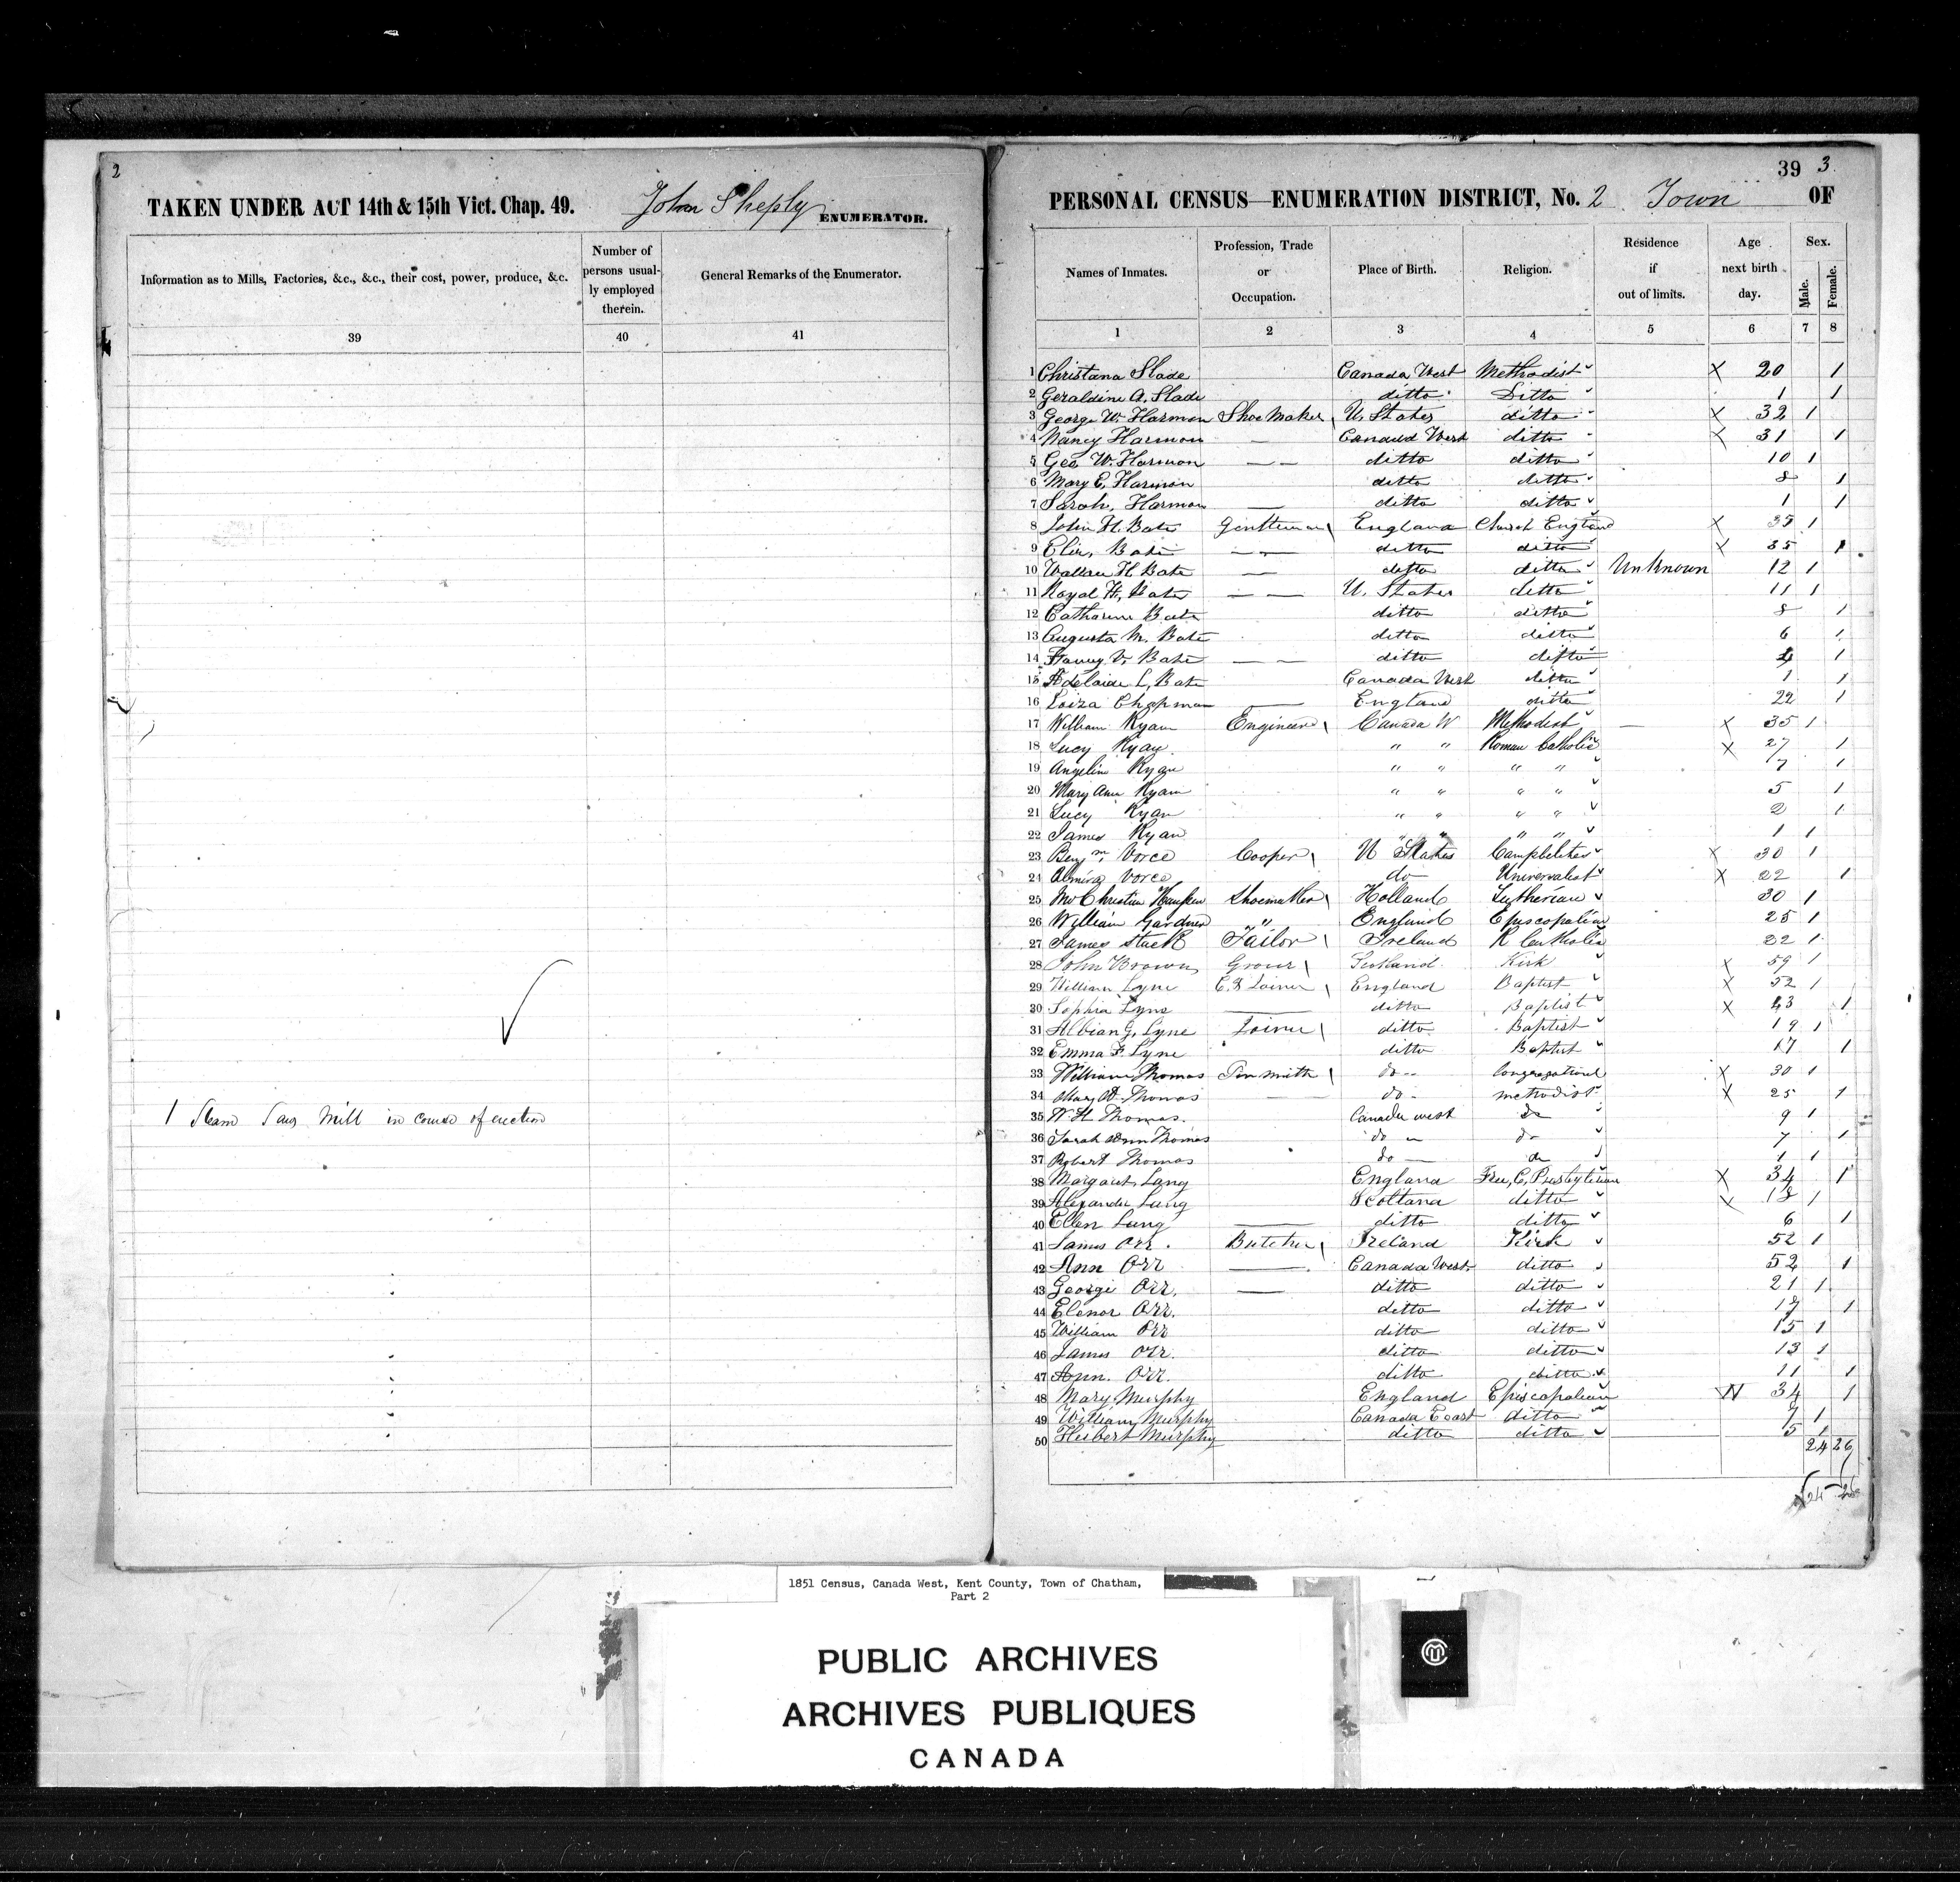 2
TAKEN UNDER ACT 14th & 15th Vict. Chap. 49. John Sheply ENUMERATOR.
Information as to Mills, Factories, &c., &c., their cost, power, produce, &c.
Number of persons usual-
ly employed
therein.
General Remarks of the Enumerator.
39 40 41
1 Steam Saw Mill in course of erection
39 3
PERSONAL CENSUS—ENUMERATION DISTRICT, No. 2 Town OF
Names of Inmates.
Profession, Trade
or
Occupation.
Place of Birth.
Religion.
Residence
if
out of limits.
Age
next birth
day.
Sex.
Male.
Female.
1 2 3 4 5 6 7 8
1 Christana Slade Canada West Methodist X 20 1
2 Geraldine A. Slade ditto Ditto 1 1
3 George W. Harmon Shoe Maker U. States ditto X 32 1
4 Nancy Harmon — Canada West ditto X 31 1
5 Geo W. Harmon — — ditto ditto 10 1
6 Mary E. Harmon ditto ditto 8 1
7 Sarah, Harmon — ditto ditto 1 1
8 John H. Bate Gentleman England Church England X 35 1
9 Eliz, Bate — — ditto ditto X 35 1
10 Wallace H Bate — ditto ditto Unknown 12 1
11 Royal H, Bate — — U. States ditto 11 1
12 Catharine Bate ditto ditto 8 1
13 Augusta M. Bate ditto ditto 6 1
14 Fanny V. Bate — — ditto ditto 1
15 Adelaide L, Bate Canada West ditto 1 1
16 Loiza Chapman — England ditto 22 1
17 William Ryan Engineer Canada W Methodist — X 35 1
18 Lucy Ryan " " Roman Catholic X 27 1
19 Angelin Ryan " " " " 7 1
20 Mary Ann Ryan " " " " 5 1
21 Lucy Ryan " " " " 2 1
22 James Ryan " " " " 1 1
23 Benjm. Vorce Cooper U States Campbelites X 30 1
24 Almira Vorce do Universalist X 22 1
25 Christian Shoemaker Holland Lutherian 30 1
26 William Gardner " England Episcopalian 25 1
27 James Stack Tailor Ireland R Catholic 22 1
28 John Brown Grocer Scotland Kirk X 59 1
29 William Lyne C. & Joiner England Baptist X 52 1
30 Sophia Lyne — ditto Baptist X 43 1
31 Albian G. Lyne Joiner ditto Baptist 19 1
32 Emma F. Lyne ditto Baptist 17 1
33 William Thomas Tin smith do-- Congregational X 30 1
34 Mary A Thomas — do- methodist X 25 1
35 W H Thomas. Canada west do 9 1
36 Sarah Ann Thomas do do 7 1
37 Robert Thomas do — do 1 1
38 Margaret Lang England Free, C, Presbyterian X 34 1
39 Alexander Lang Scotland ditto X 18 1
40 Ellen Lang — ditto ditto 6 1
41 James Orr. Butcher Ireland Kirk 52 1
42 Ann Orr — Canada West ditto 52 1
43 George Orr. — ditto ditto 21 1
44 Elenor Orr. ditto ditto 1
45 William Orr ditto ditto 15 1
46 James Orr. ditto ditto 13 1
47 Ann. Orr. ditto ditto 11 1
48 Mary Murphy England Episcopalian W 34 1
49 William Murphy Canada East ditto 7 1
50 Hubert Murphy ditto ditto 5 1
24 26
24 26
1851 Census, Canada West, Kent County, Town of Chatham,
Part 2
PUBLIC ARCHIVES
ARCHIVES PUBLIQUES
CANADA